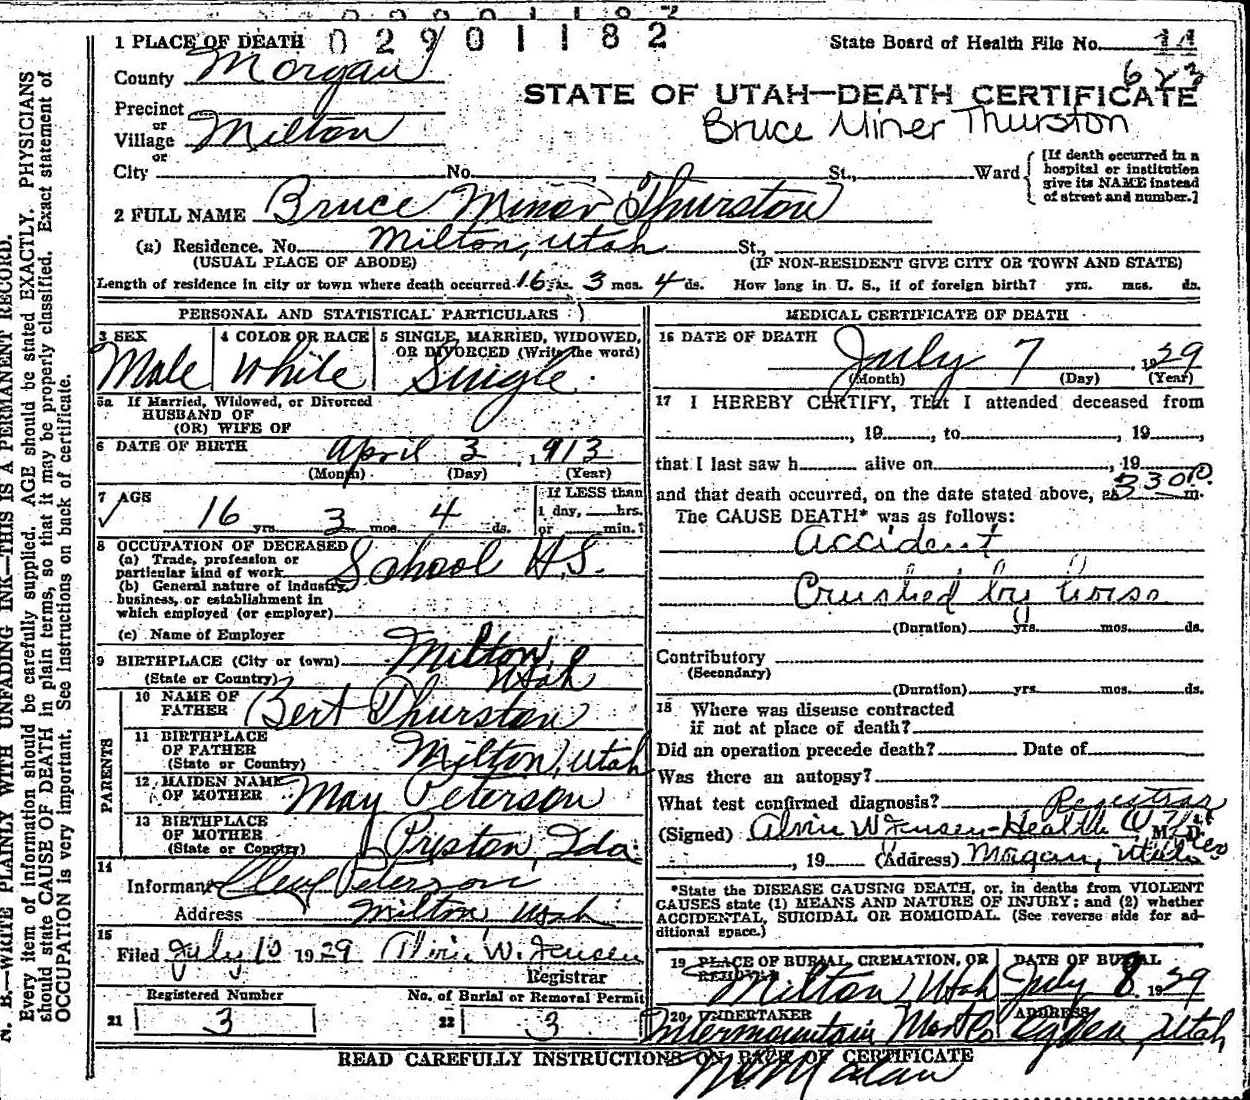 02901182
1 PLACE OF DEATH
State Board of Health File No. 14
County Morgan
623
STATE OF UTAH—DEATH CERTIFICATE
Bruce Miner Thurston
Precinct
or
Village Milton
or
City No. St., Ward
[If death occurred in a
hospital or institution
give its NAME instead
of street and number.]
2 FULL NAME Bruce Minor Thurston
(a) Residence. No. Milton, Utah St.,
(USUAL PLACE OF ABODE) (IF NON-RESIDENT GIVE CITY OR TOWN AND STATE)
Length of residence in city or town where death occurred 16 yrs. 3 mos. 4 ds. How long in U. S., if of foreign birth? yrs. mos. ds.
PERSONAL AND STATISTICAL PARTICULARS
3 SEX
Male
4 COLOR OR RACE
White
5 SINGLE, MARRIED, WIDOWED,
OR DIVORCED (Write the word)
Single
5a If Married, Widowed, or Divorced
HUSBAND OF
(OR) WIFE OF
6 DATE OF BIRTH April 3, 1913
(Month) (Day) (Year)
7 AGE
16 yrs. 3 mos. 4 ds.
If LESS than
1 day, hrs.
or min.?
8 OCCUPATION OF DECEASED
(a) Trade, profession or
particular kind of work School H.S.
(b) General nature of industry,
business, or establishment in
which employed (or employer)
(c) Name of Employer
9 BIRTHPLACE (City or town) Milton,
(State or Country) Utah
PARENTS
10 NAME OF
FATHER Bert Thurston
11 BIRTHPLACE
OF FATHER
(State or Country) Milton, Utah
12 MAIDEN NAME
OF MOTHER May Peterson
13 BIRTHPLACE
OF MOTHER
(State or Country) Preston, Ida.
14
Informant Peterson
Address Milton, Utah
15
Filed July 10 1929 Alvin W. Jensen
Registrar
Registered Number
21 3
No. of Burial or Removal Permit
22 3
MEDICAL CERTIFICATE OF DEATH
16 DATE OF DEATH
July 7, 1929
(Month) (Day) (Year)
17 I HEREBY CERTIFY, That I attended deceased from
, 19 , to , 19 ,
that I last saw h alive on , 19
and that death occurred, on the date stated above, at 330 P. m.
The CAUSE DEATH* was as follows:
Accident
Crushed by horse
(Duration) yrs. mos. ds.
Contributory
(Secondary)
(Duration) yrs. mos. ds.
18 Where was disease contracted
if not at place of death?
Did an operation precede death? Date of
Was there an autopsy?
What test confirmed diagnosis?
Registrar
(Signed) Alvin W Jensen - Health M. D.
, 19 (Address) Morgan, Utah
*State the DISEASE CAUSING DEATH, or, in deaths from VIOLENT
CAUSES state (1) MEANS AND NATURE OF INJURY; and (2) whether
ACCIDENTAL, SUICIDAL OR HOMICIDAL. (See reverse side for ad-
ditional space.)
19 PLACE OF BURIAL, CREMATION, OR
REMOVAL
Milton, Utah
DATE OF BURIAL
July 8 1929
20 UNDERTAKER
Intermountain
ADDRESS
Ogden, Utah
READ CAREFULLY INSTRUCTIONS ON BACK OF CERTIFICATE
N. B.—WRITE PLAINLY WITH UNFADING INK—THIS IS A PERMANENT RECORD.
Every item of information should be carefully supplied. AGE should be stated EXACTLY. PHYSICIANS
should state CAUSE OF DEATH in plain terms, so that it may be properly classified. Exact statement of
OCCUPATION is very important. See instructions on back of certificate.